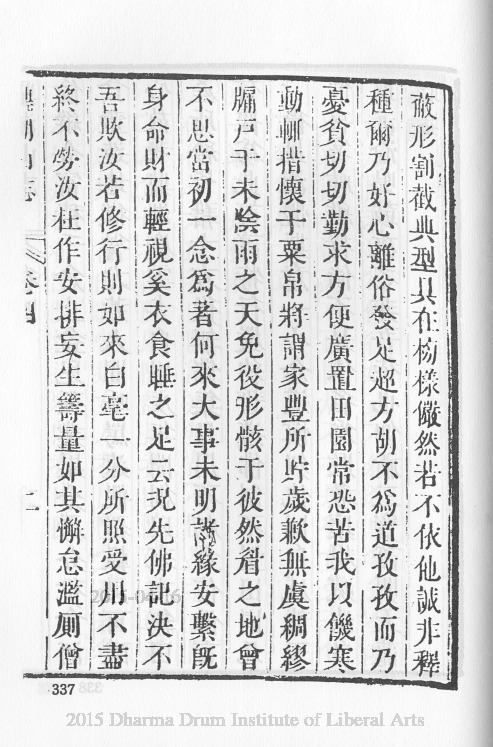 蔽形割截典型具在榜樣儼然若不依他誠非釋
種爾乃好心離俗發足超方胡不爲道孜孜而乃
憂貧切切勤求方便廣置田園常恐苦我以饑寒
動輒措懷于粟帛將謂家豐所貯歲歉無虞稠繆
牖戸于未陰雨之天免役形骸于彼然眉之地曾
不思當初一念爲著何來大事未明諸緣安繫旣
身命財而輕視奚衣食睡之足云况先佛記決不
吾欺汝若修行則如來白毫一分所照受用不盡
終不勞汝枉作安排妄生籌量如其懈怠濫厠僧
志 卷四 二
337
2015 Dharma Drum Institute of Liberal Arts